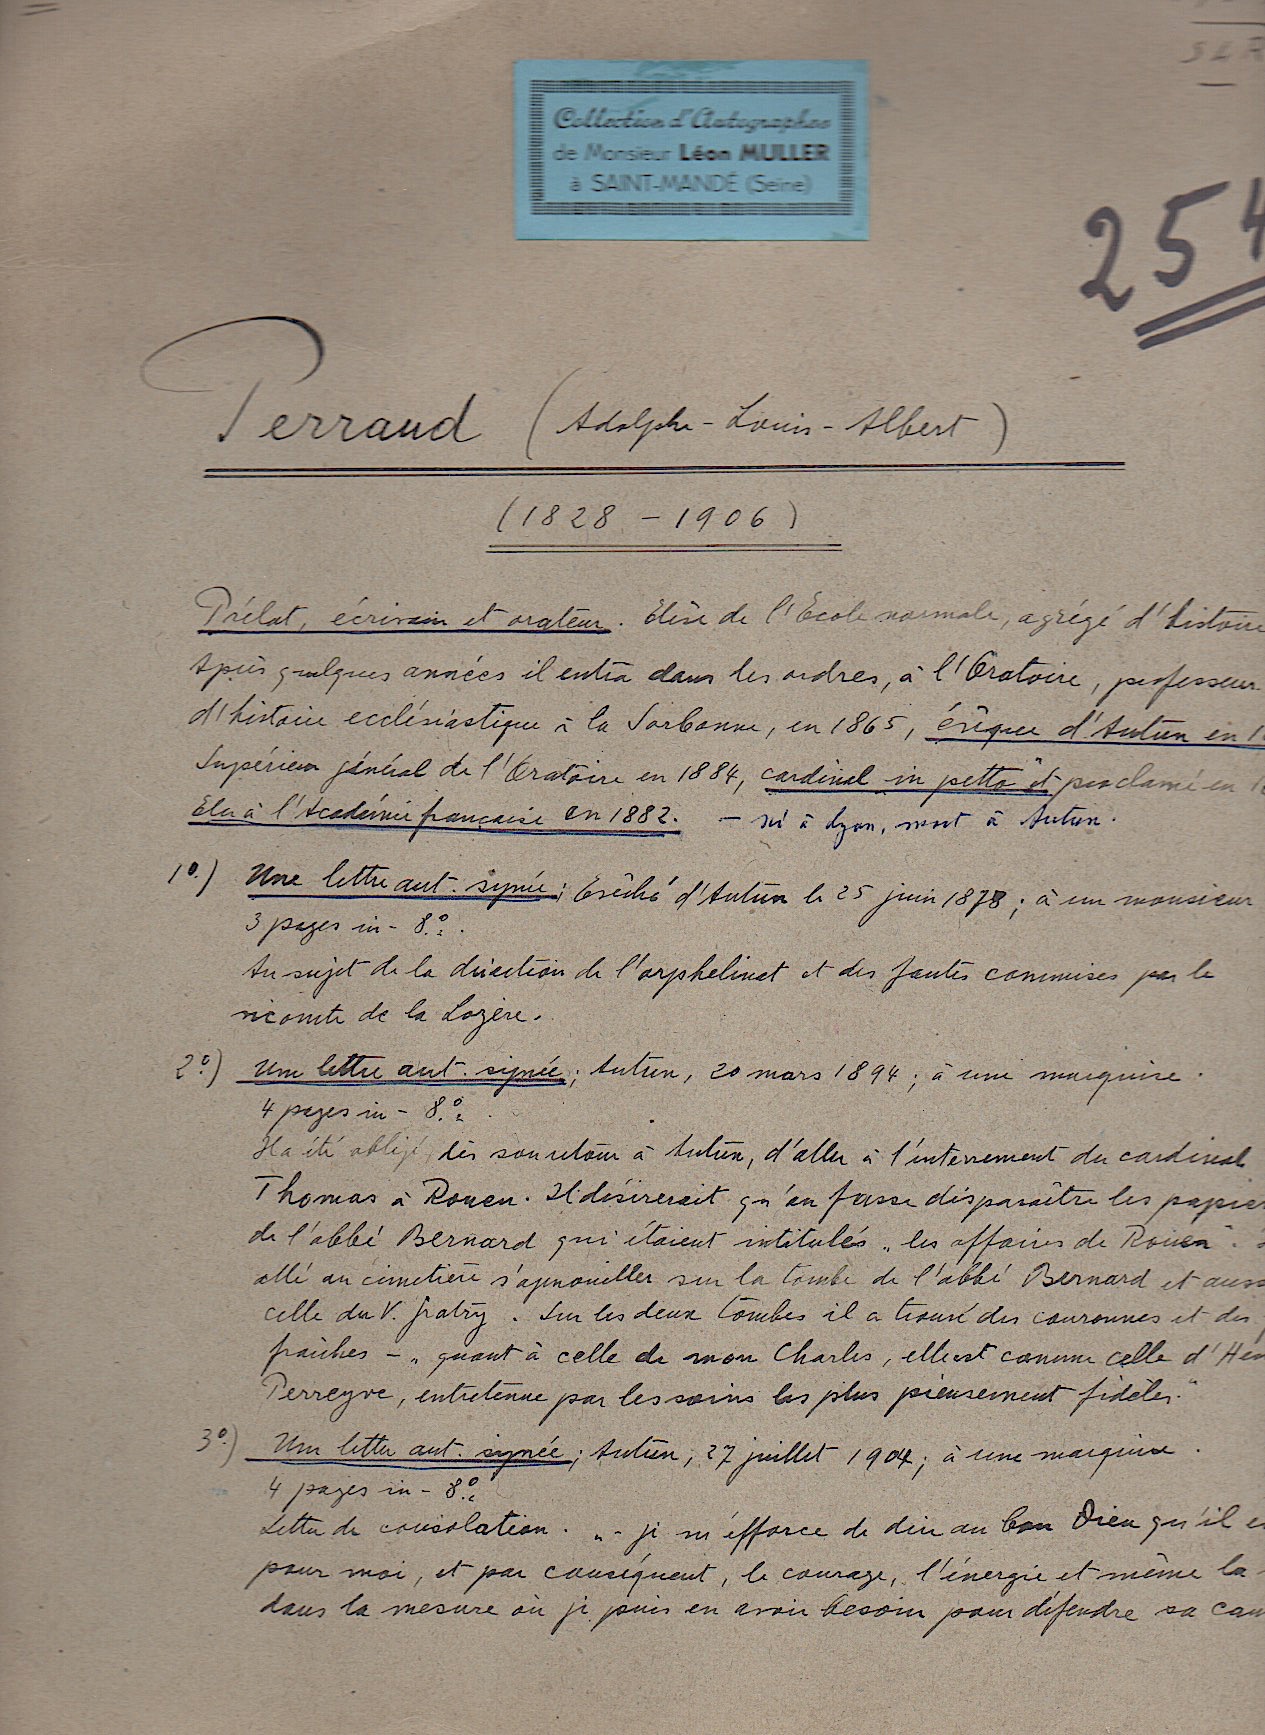 Collection d'Autographes
de Monsieur Léon MULLER
à SAINT-MANDÉ (Seine)
254
Perraud (Adolphe-Louis-Albert)
(1828-1906)
Prélat, écrivain et orateur. Elève de l'Ecole normale, agrégé d'histoire
Après quelques années il entra dans les ordres, à l'Oratoire, professeur
d'histoire ecclésiastique à la Sorbonne, en 1865, évêque d'Autun en
Supérieur général de l'Oratoire en 1884, cardinal "in petto" et proclamé en
Elu à l'Académie française en 1882. - né à Lyon, mort à Autun.
1º.) Une lettre aut. signée; Evêché d'Autun le 25 juin 1878; à un monsieur
3 pages in-8º.
Au sujet de la direction de l'orphelinat et des fautes commises par le
vicomte de la Lozère.
2º.) Une lettre aut. signée; Autun, 20 mars 1894; à une marquise.
4 pages in-8º.
Il a été obligé, dès son retour à Autun, d'aller à l'enterrement du cardinal
Thomas à Rouen. Il désirerait qu'on fasse disparaître les papier
de l'abbé Bernard qui étaient intitulés „les affaires de Rouen".
allé au cimetière s'agenouiller sur la tombe de l'abbé Bernard et auss
celle du V. Gratry. Sur les deux tombes il a trouvé des couronnes et des
fraîches - „quant à celle de mon Charles, elle est comme celle d'Hen
Perreyve, entretenue par les soins les plus pieusement fidèles."
3º.) Une lettre aut. signée; Autun, 27 juillet 1904; à une marquise.
4 pages in-8º.
Lettre de consolation. „- je m'efforce de dire au bon Dieu qu'il
pour moi, et par conséquent, le courage, l'énergie et même la
dans la mesure où je puis en avoir besoin pour défendre sa cau